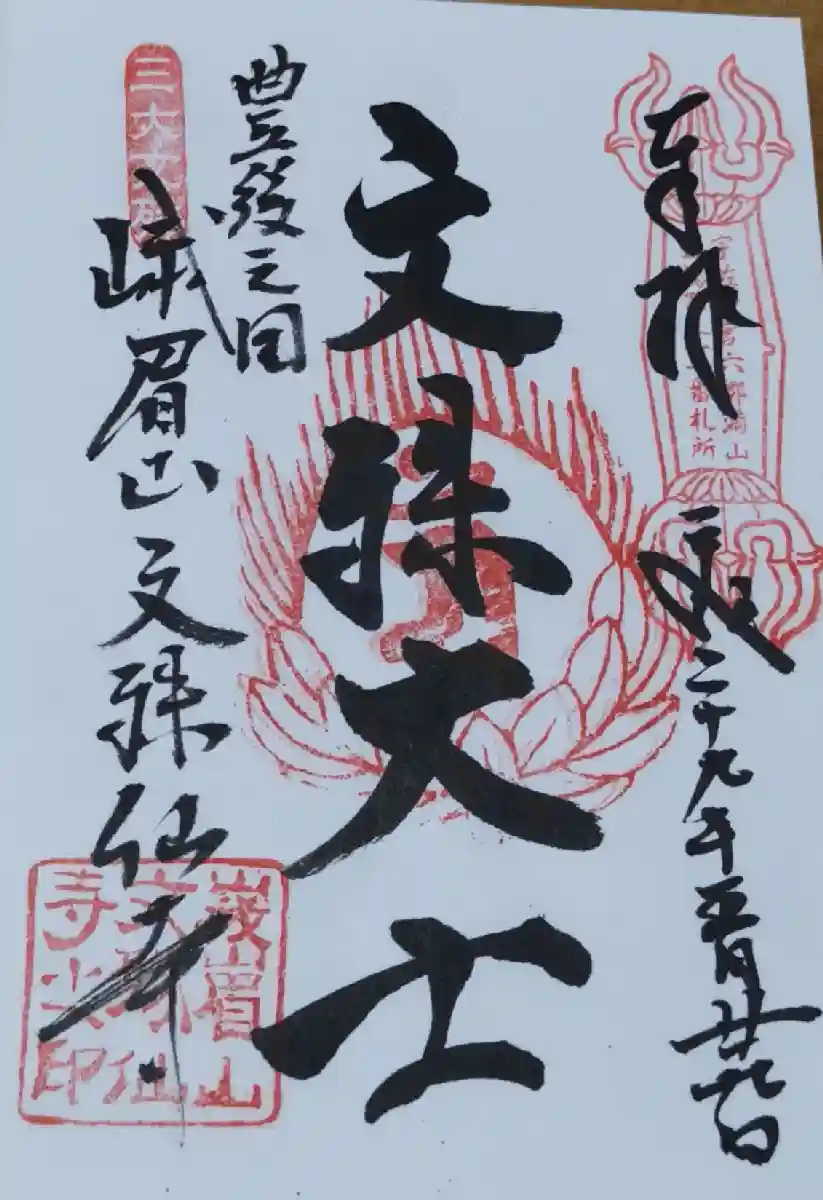 奉拝
平成二十九年五月廿九日
宇佐神宮六郷満山
番札所
文殊大士
豊後之国
三大文殊
峨眉山文殊仙寺
峨眉山
文殊仙
寺之印